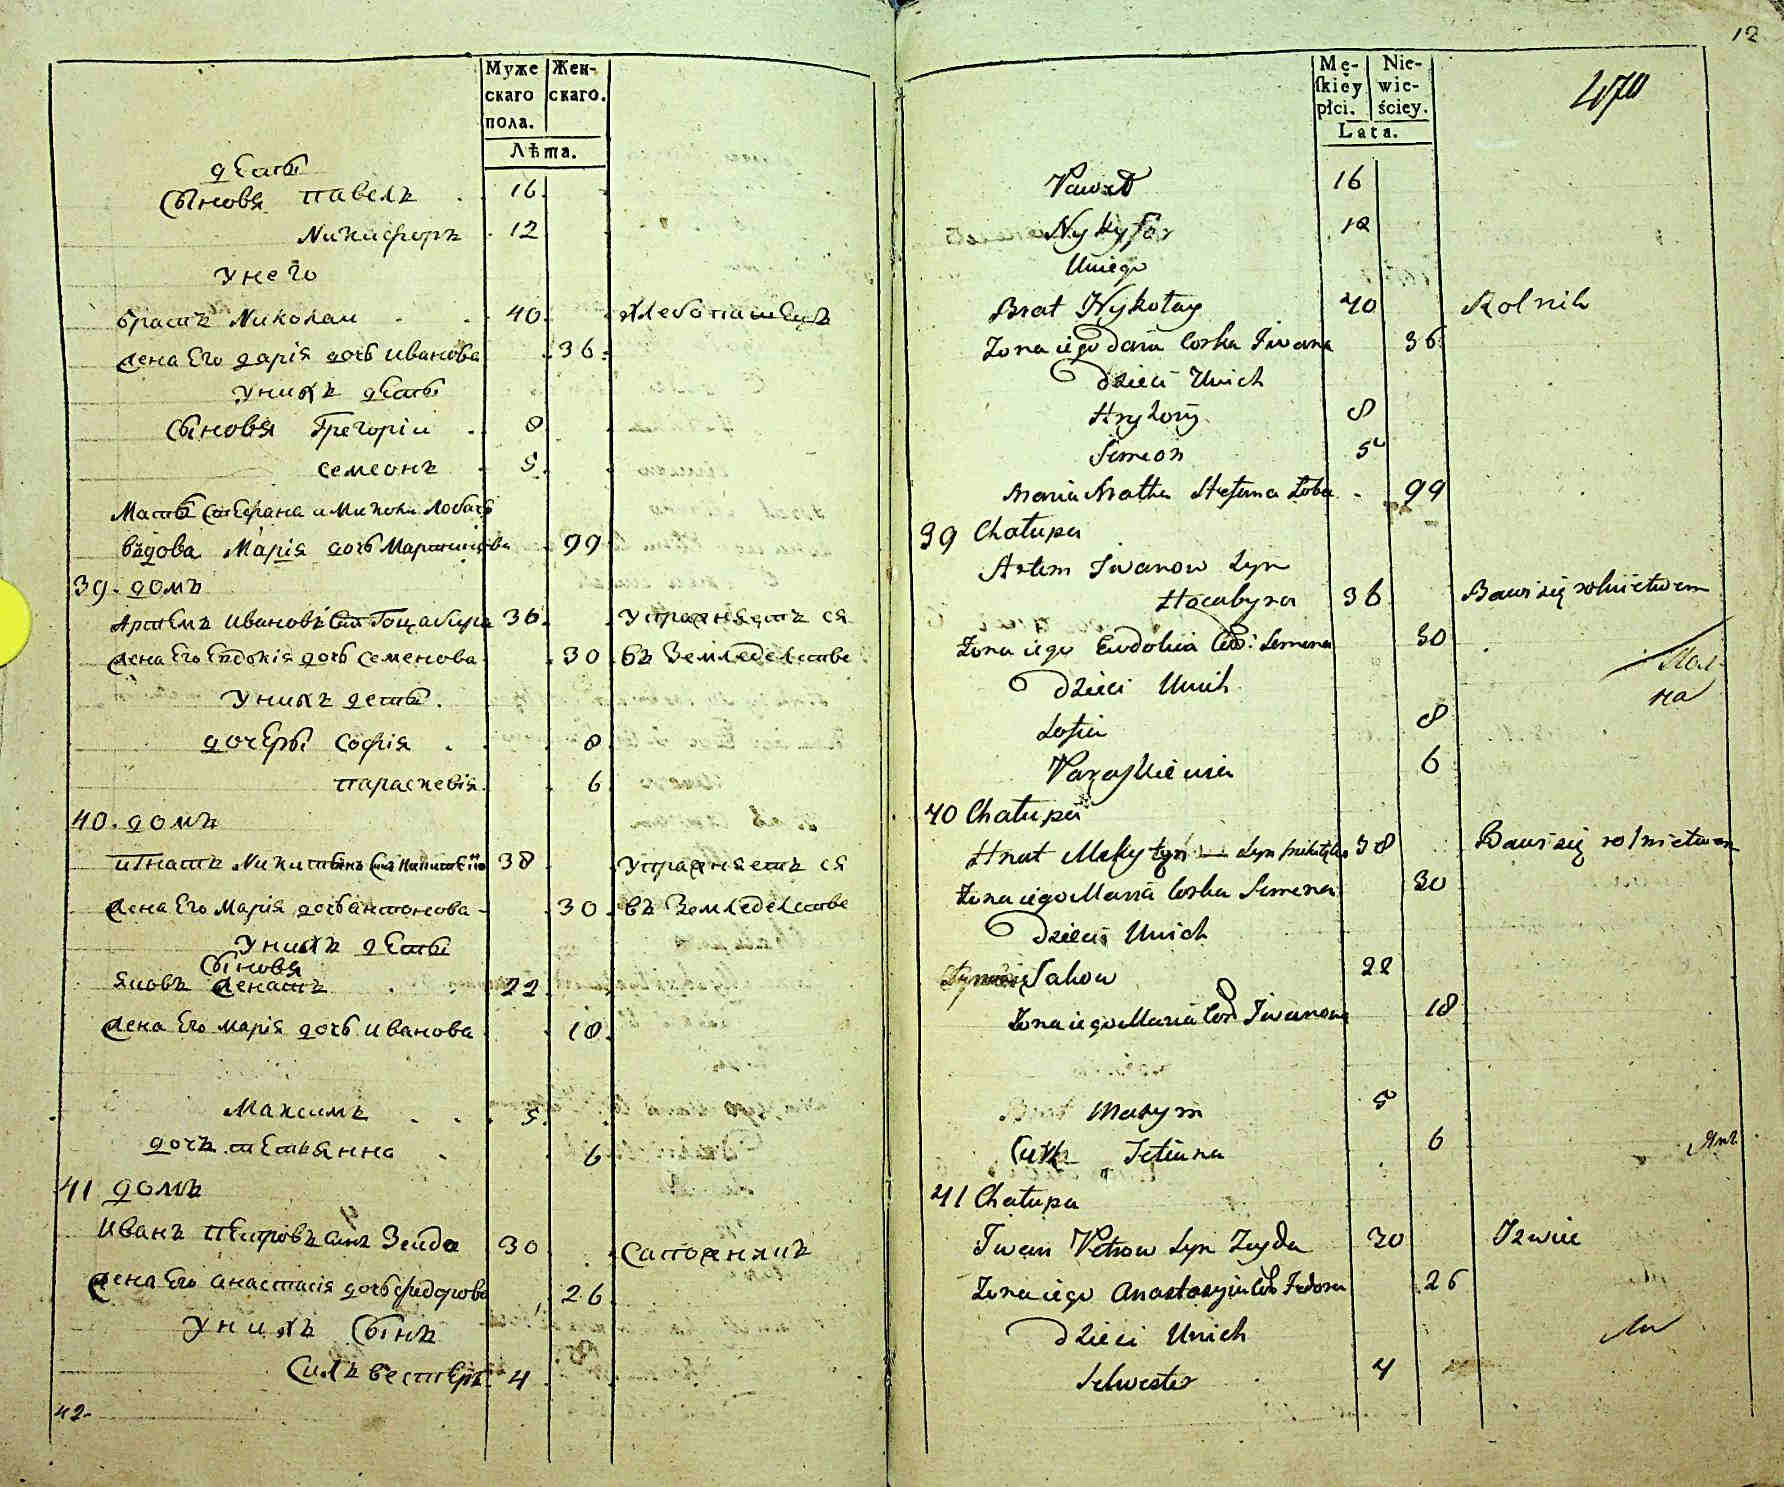 Муже
скаго
пола.
Жен-
скаго.
Лѣта.
дѣти
Сыновя павелъ 16.
Никифоръ 12
Унего
братъ Николаи 40. хлебопашецъ
жена Его дарія дочь иванова 36.
Унихъ дети
Сыновя Григоріи 8
Семеонъ 5.
Мать Стефана и Миколи
вдова Марія дочь 99
39. домъ
Артемъ ивановъ Сынъ 36. Упражняетъ ся
жена Его Евдокія дочь Семенова 30. въ Земледелстве
Унихъ дети.
дочери Софія 8
параскевія. 6
40. домъ
игнатъ Никитинъ Сынъ 38 Упражняетъ ся
жена Его Марія дочь антонова 30. въ Земледелстве
Унихъ дети
Сыновя
яковъ женатъ 22
жена Его марія дочь иванова 18.
Максимъ 5.
дочъ тетьянна 6
41 домъ
иванъ Петровъ Сынъ Зейда 30 Сапожникъ
жена Его анастасія дочь фидорова 26
Унихъ Сынъ
Силъвестеръ 4
42.
12
Mę-
skiey
płci.
Nie-
wie-
ściey.
Lata.
470
Paweł 16
Nykyfor 12
Uniego
Brat Nykołay 40 Rolnik
Zona iego Daria Corka Iwana 36
Dzieci Unich
Hryhory 8
Simeon 5
Maria Matka Stefana 99
39 Chałupa
Artem Iwanow Syn
36 Bawi się rolnictwem
Zona iego Ewdokia Cor: Semena 30
Dzieci Unich
Sofia 8
Paraskiewia 6
40 Chałupa
Hnat Mekytyn Syn 38 Bawi się rolnictwem
Zona iego Maria Corka Semena 30
Dzieci Unich
Jakow 22
Zona iego Maria Cor Iwanowa 18
Maxym 5
Curka Tetiana 6
41 Chałupa
Iwan Petrow Syn Zeyda 30 Szwiec
Zona iego Anastazyia Cor Fedora 26
Dzieci Unich
Selwester 4